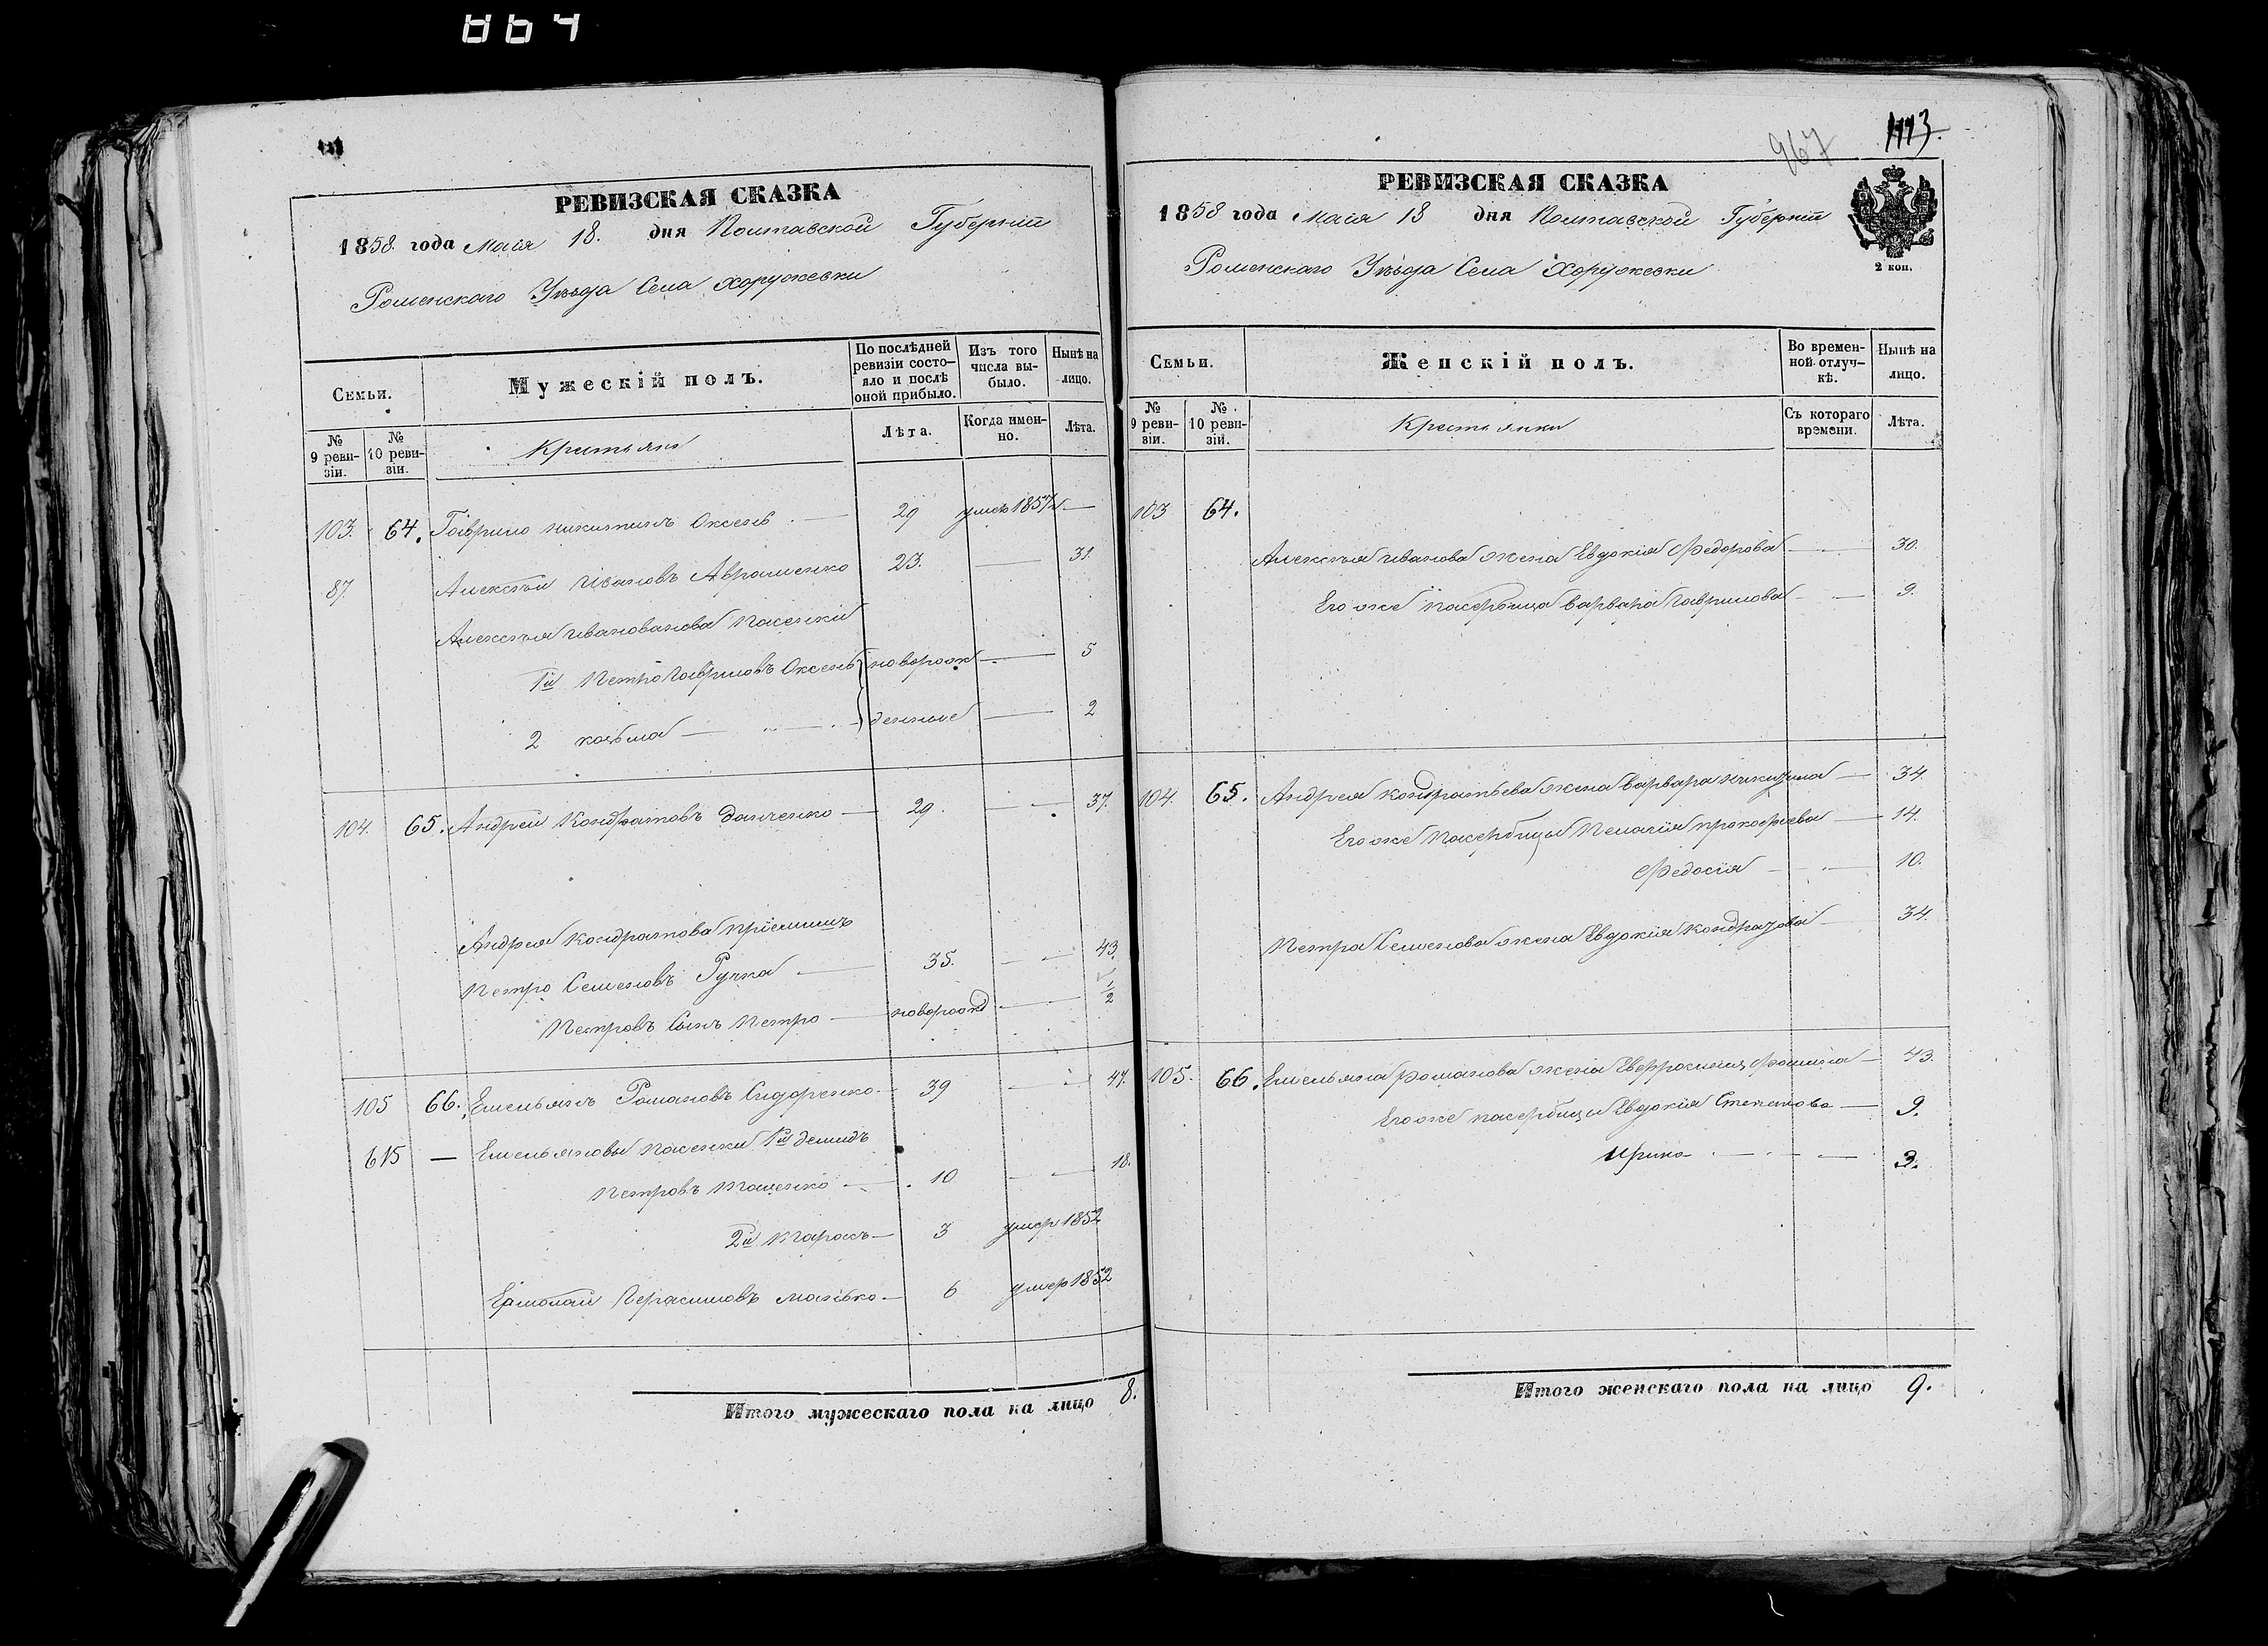 864
РЕВИЗСКАЯ СКАЗКА
1858 года Маія 18. дня Полтавской Губерніи
Роменскаго Уѣзда Села Хоружевки
Семьи.
Мужескій полъ.
По послѣдней ревизіи состо-
яло и послѣ
оной прибыло.
Изъ того
числа вы-
было.
Нынѣ на
лицо.
№ 9 реви-
зіи.
№ 10 реви-
зіи.
Крестьяне
Лѣта.
Когда имен-
но.
Лѣта.
103. 64. Гаврило Никитинъ Оксень — 29 умеръ 1857 —
87. Алексѣй Ивановъ Авраменко 23. — 31.
Алексѣя Иванованова пасенки
1й Петро Гавриловъ Оксень новорож — 5
2 козьма — " — денные — 2
104. 65. Андрей Кондратовъ Данченко — 29. — 37.
Андрея Кондратова пріемишъ
Петро Семеновъ Ручка — 35. — 43.
Петровъ Сынъ Петро — новорожд — 1/2
105 66. Емельянъ Романовъ Сидоренко — 39 — 47.
615 — Емельяновы пасенки 1й Демидъ
Петровъ — 10 — 18.
2й Тарасъ — 3 умер 1852
Ермолай Герасимовъ Манько — 6 умер 1852
Итого мужескаго пола на лицо 8.
967 1113.
РЕВИЗСКАЯ СКАЗКА
1858 года Маія 18 дня Полтавской Губерніи
Роменскаго Уѣзда Села Хоружевки
2 коп.
Семьи.
Женскій полъ.
Во времен-
ной отлуч-
кѣ.
Нынѣ на
лицо.
№ 9 реви-
зіи.
№ 10 реви-
зіи.
Крестьянки
Съ котораго
времени.
Лѣта.
103 64.
Алексѣя Иванова жена Евдокія Федорова — 30.
Его же пасербица Варвара Гаврилова — 9.
104. 65. Андрея Кондратьева жена Варвара — 34.
Его же пасербицы Пелагія Прокофіева — 14.
Федосія — " — 10.
Петра Семенова жена Евдокія Кондратова — 34.
105. 66. Емельяна Романова жена Евфросинія Фомина — 43.
Его же пасербицы Евдокія Степанова — 9.
Ирина — 3.
Итого женскаго пола на лицо 9.